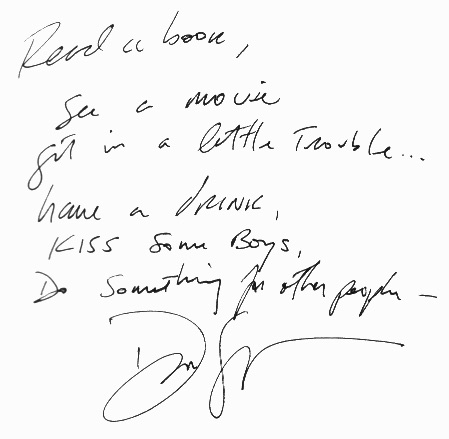 Read a book,
See a movie
get in a little Trouble...
have a drink,
Kiss some Boys,
Do something for other people —